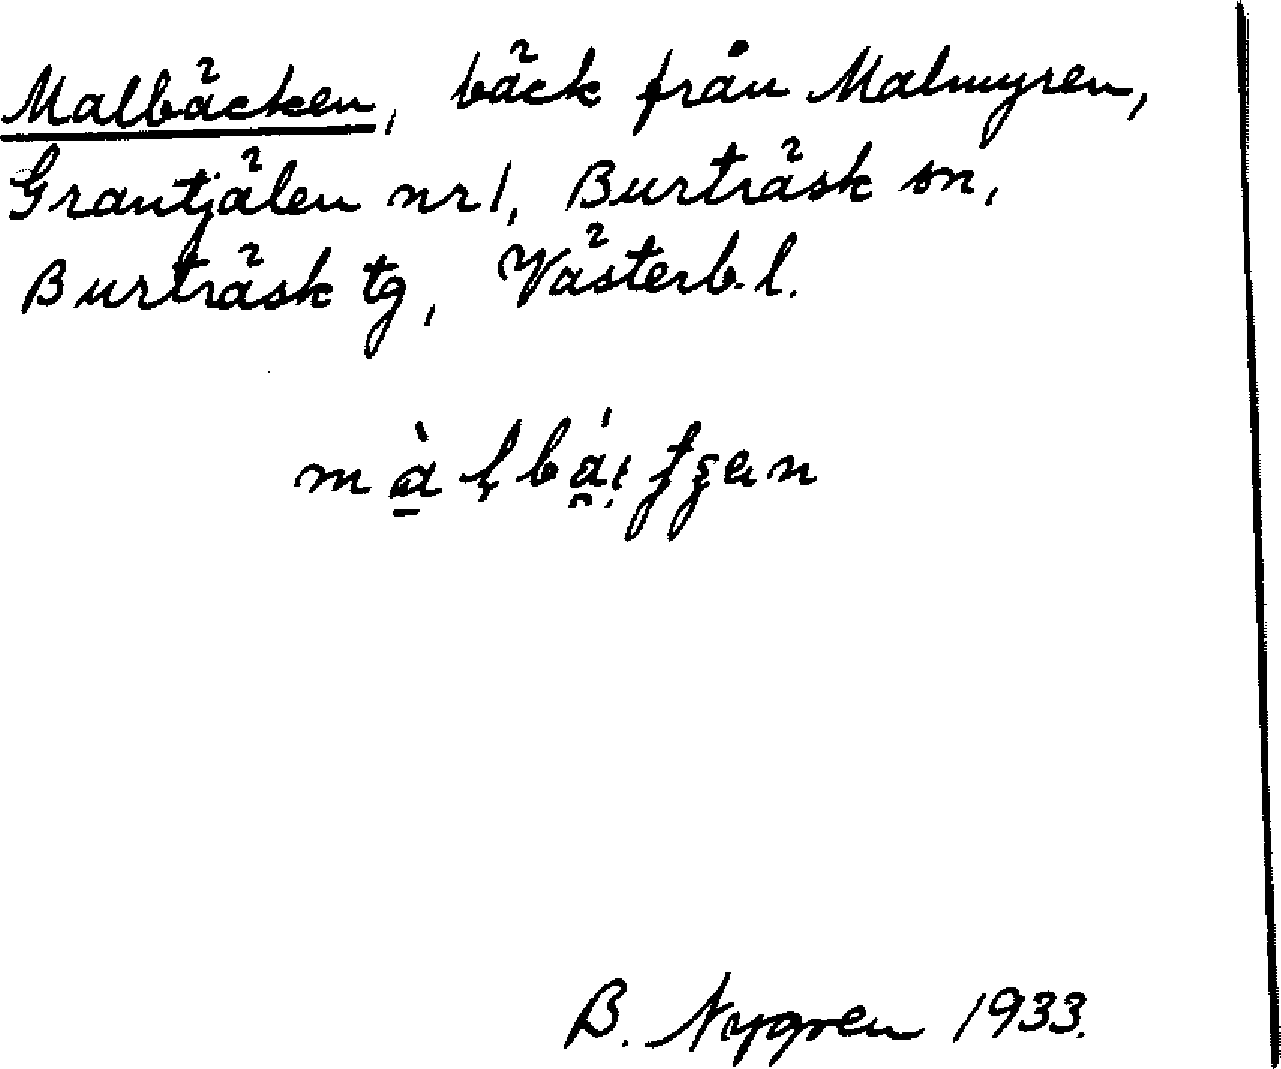 Malbäcken, bäck från Malmyren,
Grantjälen nr 1, Burträsk sn,
Burträsk tg, Västerb. l.
B. Nygren 1933.